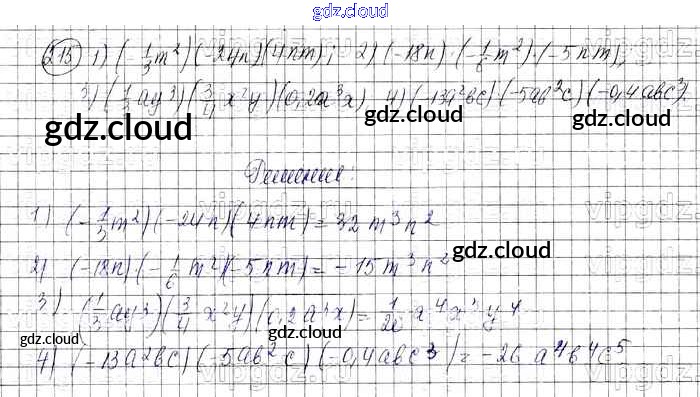 gdz.cloud
215 1) (-1/3 m²)(-24n)(4nm); 2) (-18n)·(-1/6 m²)·(-5nm);
3) (1/3 ay³)(3/4 x²y)(0,2a³x) 4) (-13a²bc)·(-5ab²c)(-0,4abc³).
gdz.cloud gdz.cloud gdz.cloud
Решение:
1) (-1/3 m²)(-24n)(4nm) = 32 m³n²
2) (-18n)·(-1/6 m²)(-5nm) = -15 m³n²
gdz.cloud
3) (1/3 ay³)(3/4 x²y)(0,2a³x) = 1/20 a⁴x³y⁴
gdz.cloud gdz.cloud gdz.cloud
4) (-13a²bc)(-5ab²c)(-0,4abc³) = -26 a⁴b⁴c⁵